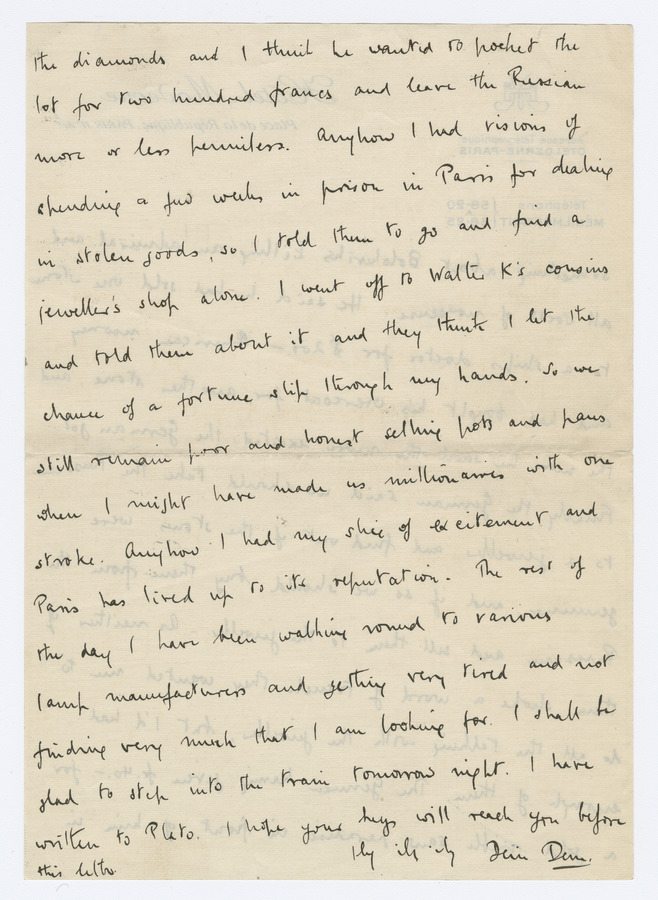 the diamonds and I think he wanted to pocket the
lot for two hundred francs and leave the Russian
more or less penniless. Anyhow I had visions of
spending a few weeks in prison in Paris for dealing
in stolen goods, so I told them to go and find a
jeweller's shop alone. I went off to Walter K's cousins
and told them about it and they think I let the
chance of a fortune slip through my hands. So we
still remain poor and honest selling pots and pans
when I might have made us millionaires with one
stroke. Anyhow I had my slice of excitement and
Paris has lived up to its reputation. The rest of
the day I have been walking round to various
lamp manufacturers and getting very tired and not
finding very much that I am looking for. I shall be
glad to step into the train tomorrow night. I have
written to Plato. I hope your keys will reach you before
this letter. Dein Dem.